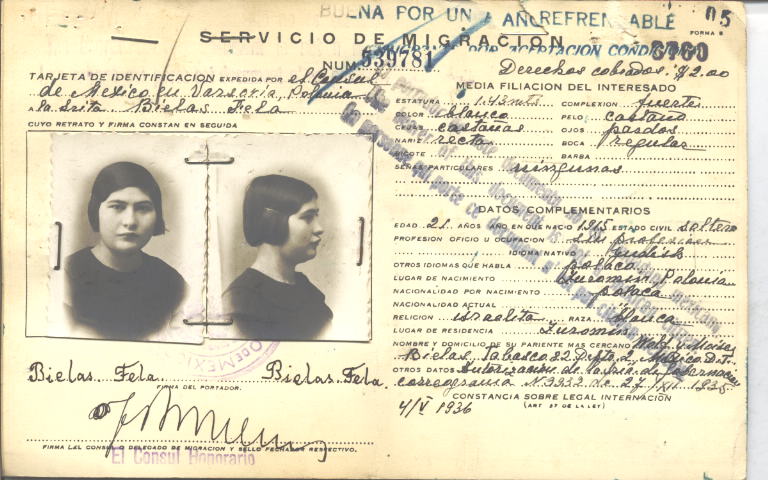 BUENA POR UN AÑO REFRENDABLE
SERVICIO DE MIGRACION
FORMA 5
NUM. 539781
TARJETA DE IDENTIFICACION EXPEDIDA POR el Consul
de Mexico en Varsovia, Polonia
A la Srita. Bielas Fela
CUYO RETRATO Y FIRMA CONSTAN EN SEGUIDA
Bielas Fela Bielas Fela
FIRMA DEL PORTADOR.
FIRMA DEL CONSUL O DELEGADO DE MIGRACION Y SELLO FECHADOR RESPECTIVO.
El Consul Honorario
Derechos cobrados: $2.00
MEDIA FILIACION DEL INTERESADO
ESTATURA 1.45 mts COMPLEXION fuerte
COLOR blanco PELO castaño
CEJAS castañas OJOS pardos
NARIZ recta BOCA regular
BIGOTE BARBA
SEÑAS PARTICULARES ningunas
DATOS COMPLEMENTARIOS
EDAD 21 AÑOS AÑO EN QUE NACIO 1915 ESTADO CIVIL soltera
PROFESION OFICIO U OCUPACION sin profesion
IDIOMA NATIVO yudish
OTROS IDIOMAS QUE HABLA polaco
LUGAR DE NACIMIENTO Zuromin, Polonia
NACIONALIDAD POR NACIMIENTO polaca
NACIONALIDAD ACTUAL
RELIGION israelita RAZA blanca
LUGAR DE RESIDENCIA Zuromin
NOMBRE Y DOMICILIO DE SU PARIENTE MAS CERCANO Wolf y Moises
Bielas, Tabasco 22 Dpto. 2, Mexico D.F.
OTROS DATOS Autorizacion de la Sria. de Gobernacion
27/XII. 1935
CONSTANCIA SOBRE LEGAL INTERNACION
(ART 57 DE LA LEY)
4/V 1936